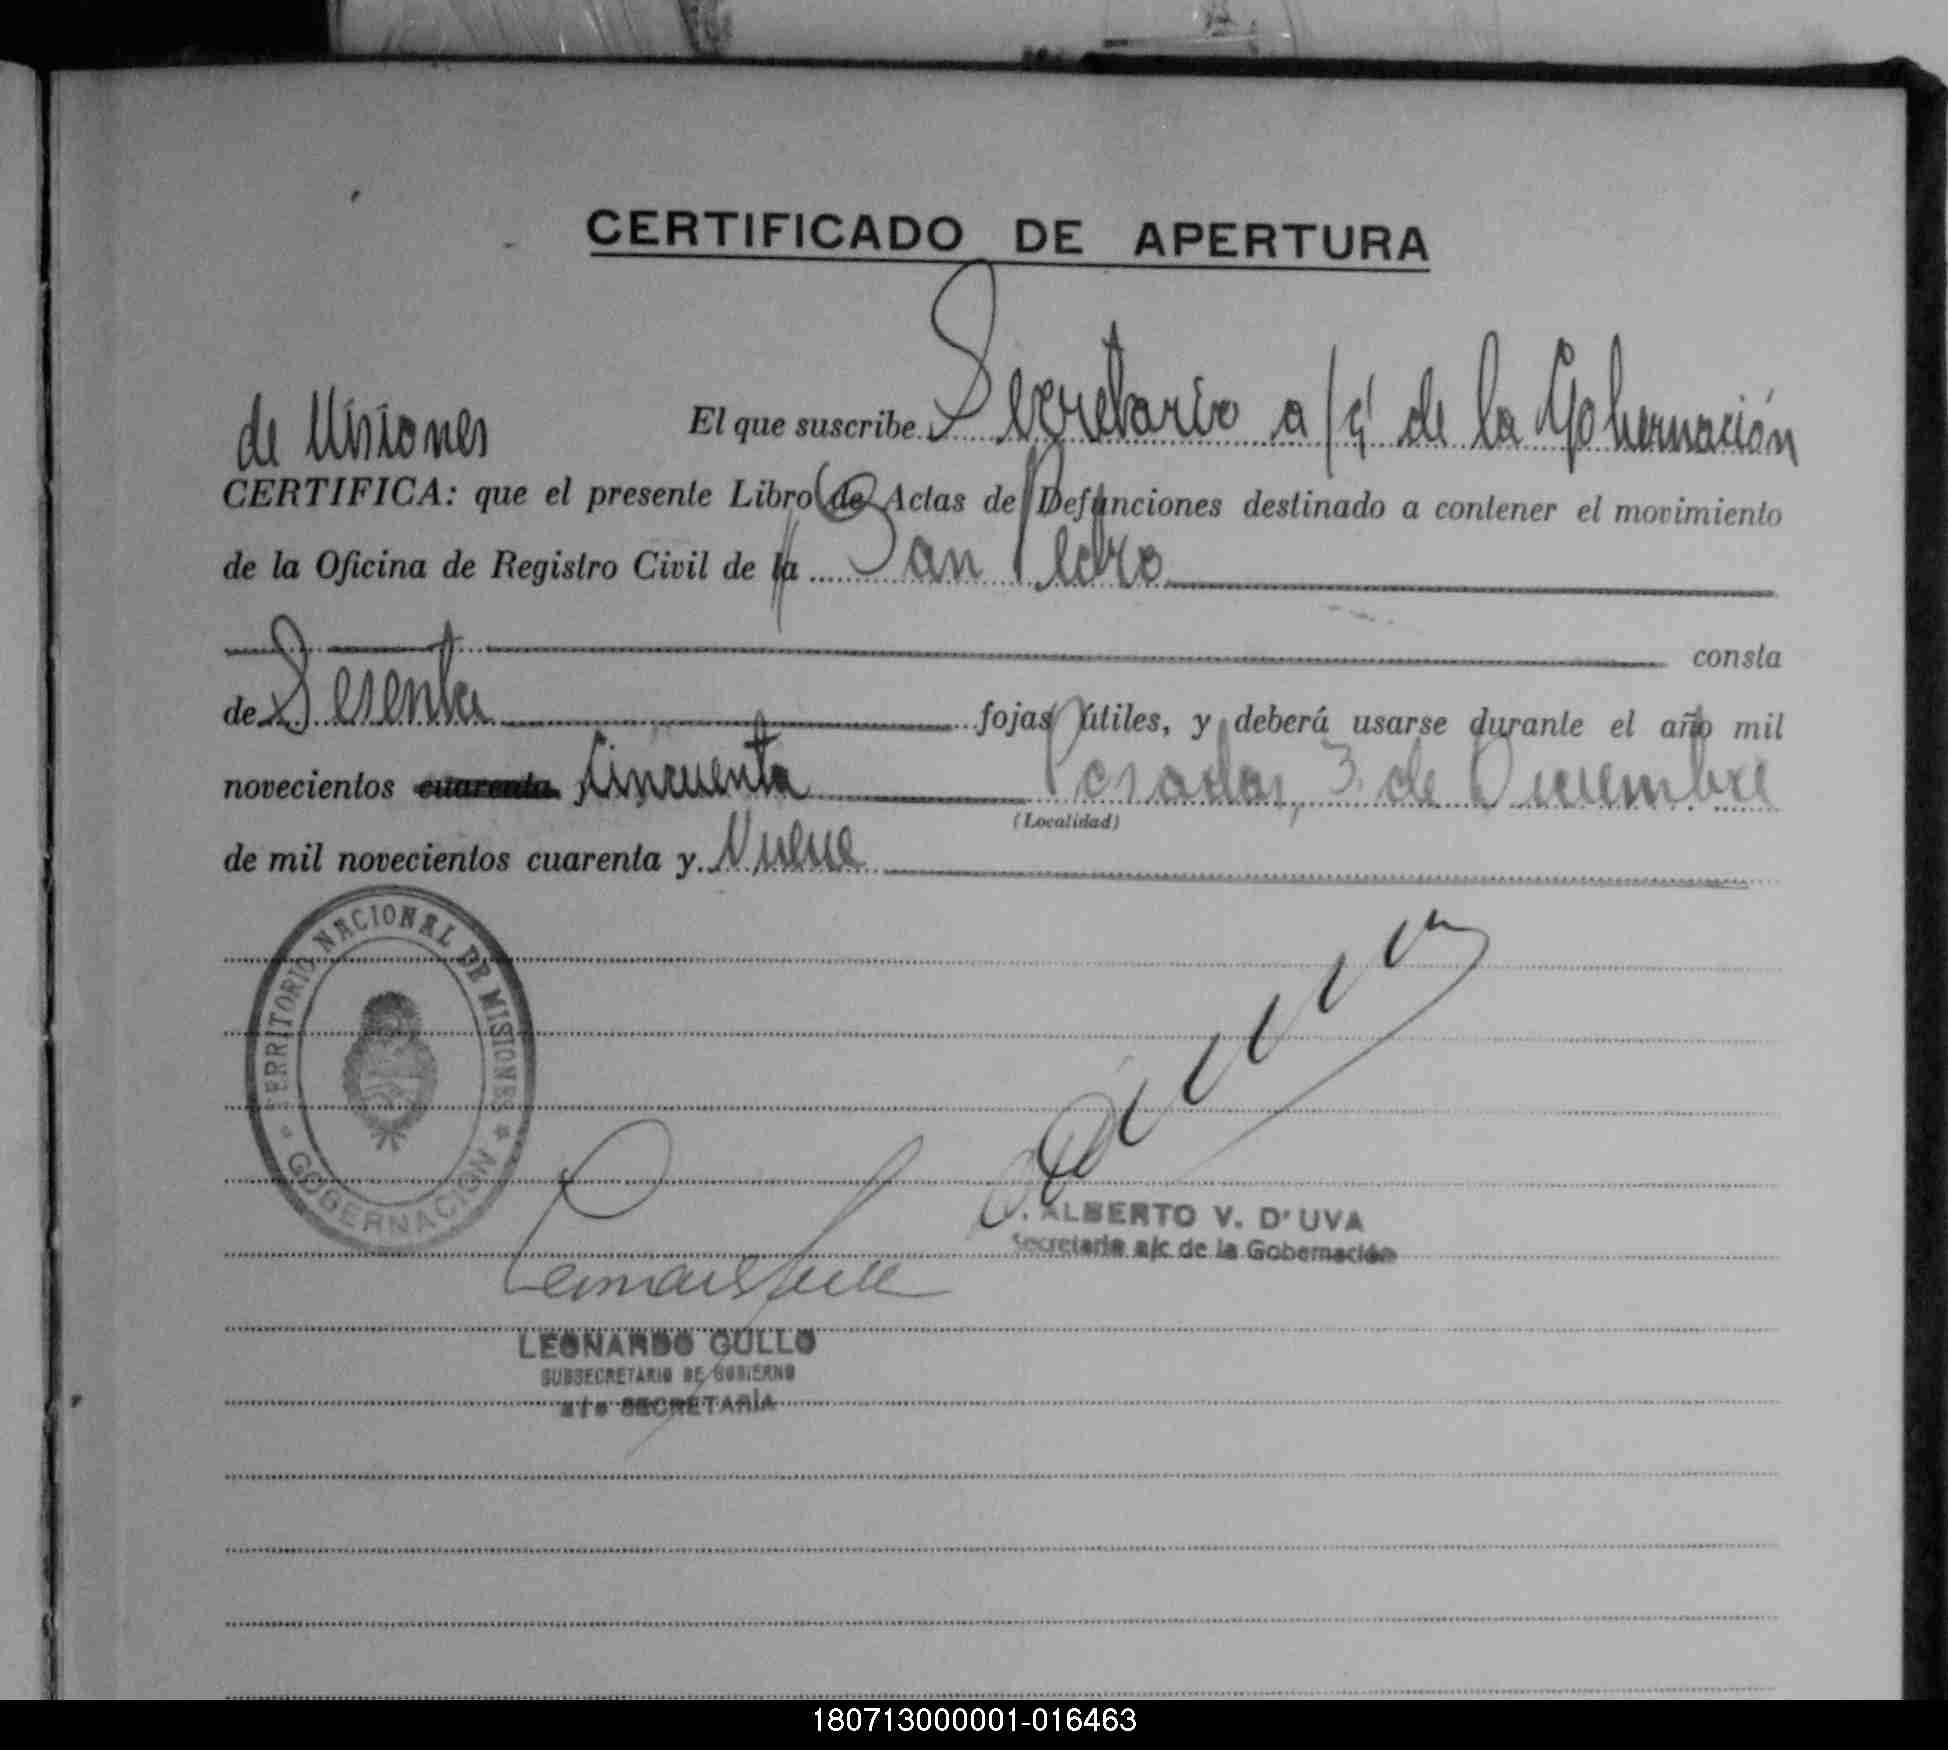 CERTIFICADO DE APERTURA
El que suscribe Secretario a/c de la Gobernación
de Misiones
CERTIFICA: que el presente Libro de Actas de Defunciones destinado a contener el movimiento
de la Oficina de Registro Civil de la San Pedro
consta
de Sesenta fojas útiles, y deberá usarse durante el año mil
novecientos cuarenta Cincuenta Posadas, 3 de Diciembre
(Localidad)
de mil novecientos cuarenta y Nueve
TERRITORIO NACIONAL DE MISIONES
GOBERNACION
ALBERTO V. D'UVA
Secretario a/c de la Gobernación
LEONARDO GULLO
SUBSECRETARIO DE GOBIERNO
a/c SECRETARÍA
180713000001-016463